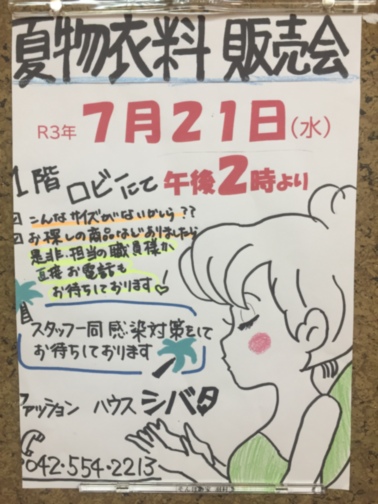 夏物衣料 販売会
R3年 7月21日(水)
1階 ロビーにて 午後2時より
こんなサイズがないかしら??
お探しの商品などありましたら
是非、担当の職員様か
直接お電話も
お待ちしております♡!
スタッフ一同 感染対策をして
お待ちしております
ファッション ハウス シバタ
042-554-2213